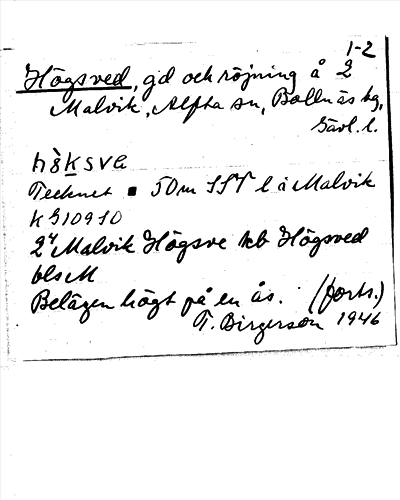 1-2
Högsved, gd och röjning å 2
Malvik, Alfta sn, Bollnäs kg,
Gävl. l.
hö̀ksve
Tecknet ▪ 50 m SSV l i Malvik
k 910910
2⁴ Malvik Högsve kb Högsved
bls M
Belägen högt på en ås. (forts.)
T. Birgerson 1946